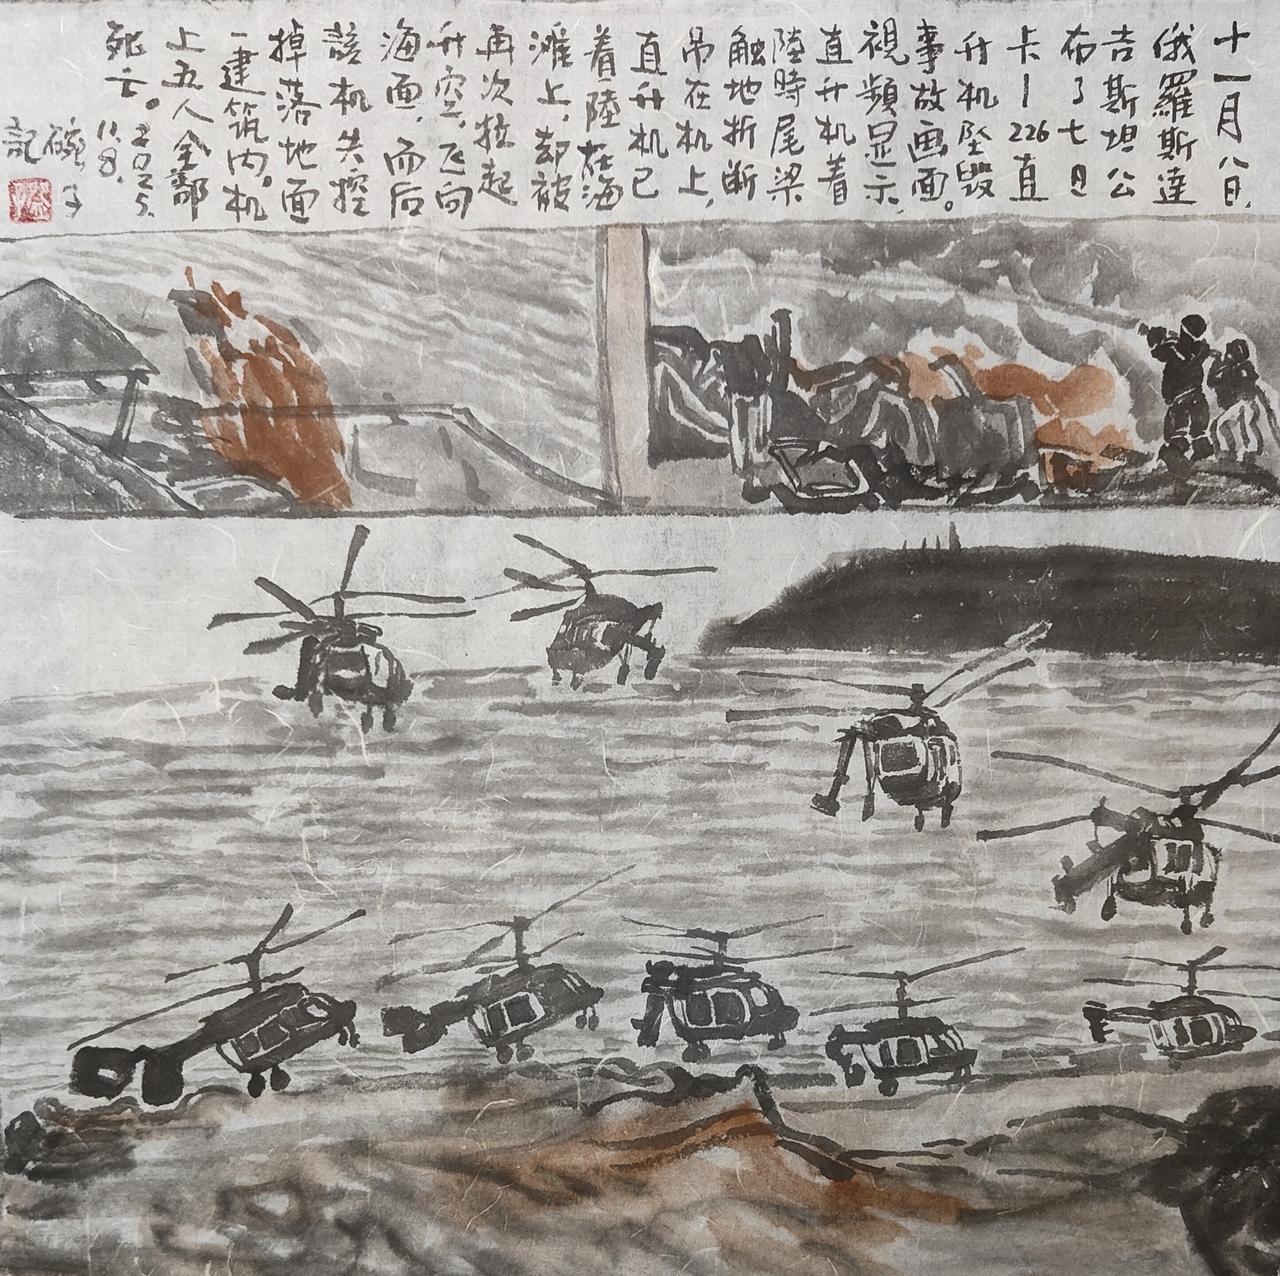 十一月八日，
俄羅斯達
吉斯坦公
布了七日
卡－226直
升机坠毁
事故画面。
視頻显示，
直升机着
陸時尾梁
触地折断
吊在机上，
直升机已
着陸在海
滩上，却被
再次拉起
升空，飞向
海面，而后
該机失控
掉落地面
一建筑内。机
上五人全部
死亡。
2025.
11.8.
碗子
記